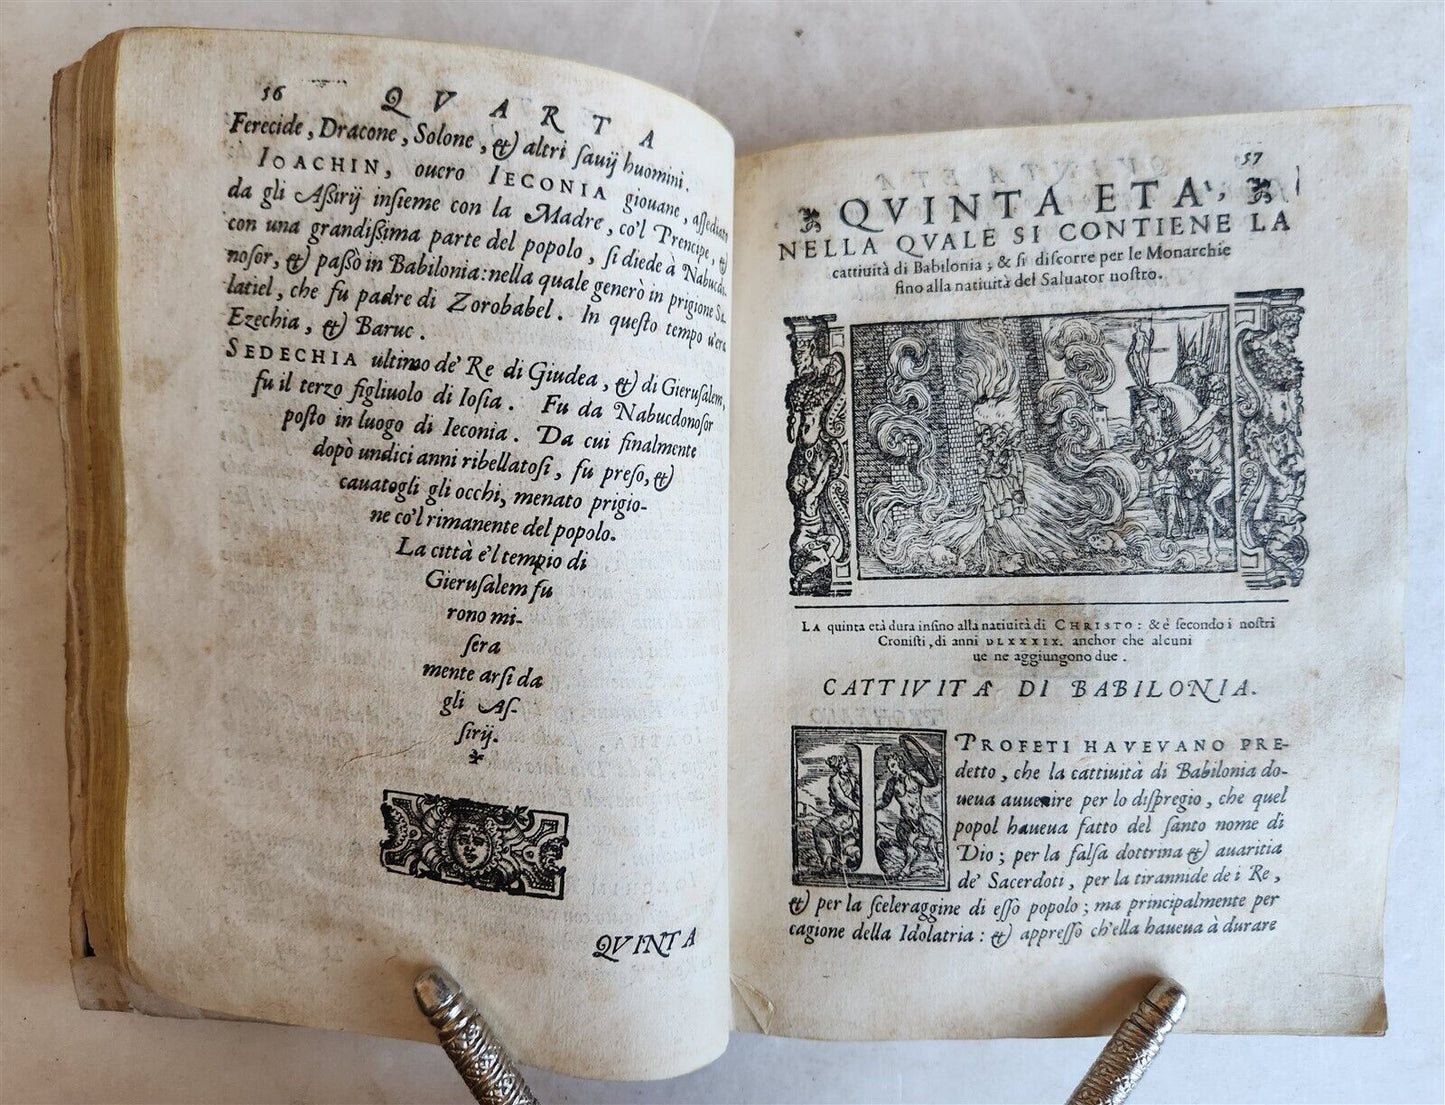 56 QVARTA
Ferecide, Dracone, Solone, & altri ſauij huomini.
IOACHIN, ouero IECONIA giouane, aſſediato
da gli Aſſirij inſieme con la Madre, co'l Prencipe, &
con una grandiſſima parte del popolo, ſi diede à Nabucdo
noſor, & paſſò in Babilonia: nella quale generò in prigione Sa-
latiel, che fu padre di Zorobabel. In queſto tempo u'era
Ezechia, & Baruc.
SEDECHIA ultimo de' Re di Giudea, & di Gieruſalem,
fu il terzo figliuolo di Ioſia. Fu da Nabucdonoſor
poſto in luogo di Ieconia. Da cui finalmente
dopò undici anni ribellatoſi, fu preſo, &
cauatogli gli occhi, menato prigio-
ne co'l rimanente del popolo.
La città e'l tempio di
Gieruſalem fu
rono mi-
ſera
mente arſi da
gli Aſ-
ſirij.
*
QVINTA
57
QVINTA ETA,
NELLA QVALE SI CONTIENE LA
cattiuità di Babilonia; & ſi diſcorre per le Monarchie
fino alla natiuità del Saluator noſtro.
LA quinta età dura inſino alla natiuità di CHRISTO: & è ſecondo i noſtri
Croniſti, di anni DLXXXIX. anchor che alcuni
ue ne aggiungono due.
CATTIVITA DI BABILONIA.
I PROFETI HAVEVANO PRE-
detto, che la cattiuità di Babilonia do-
ueua auuenire per lo diſpregio, che quel
popol haueua fatto del ſanto nome di
Dio; per la falſa dottrina & auaritia
de' Sacerdoti, per la tirannide de i Re,
& per la ſceleraggine di eſſo popolo; ma principalmente per
cagione della Idolatria: & appreſſo ch'ella haueua à durare